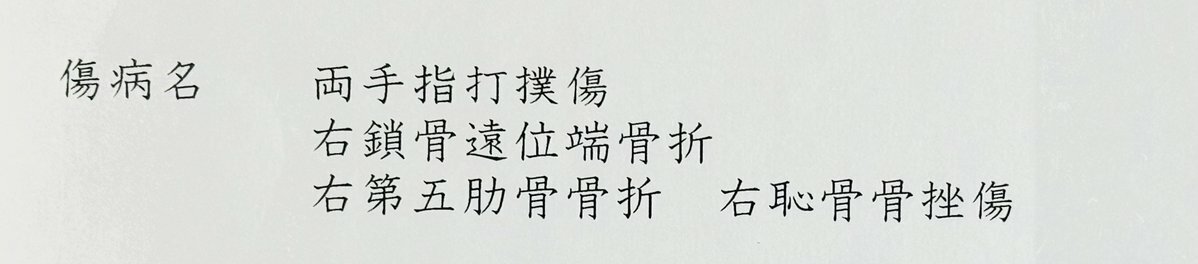 傷病名　両手指打撲傷
右鎖骨遠位端骨折
右第五肋骨骨折　右恥骨骨挫傷